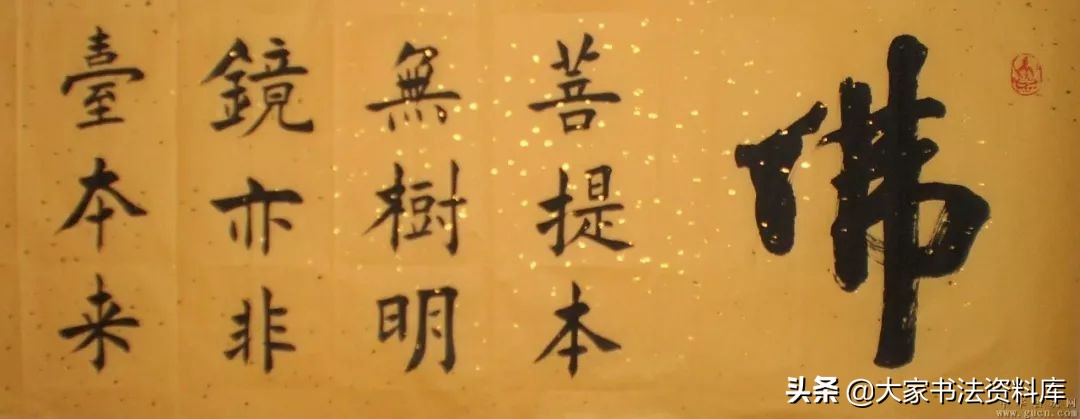 佛
菩提本
無樹明
鏡亦非
臺本来
头条 @大家书法资料库
www.gucn.com